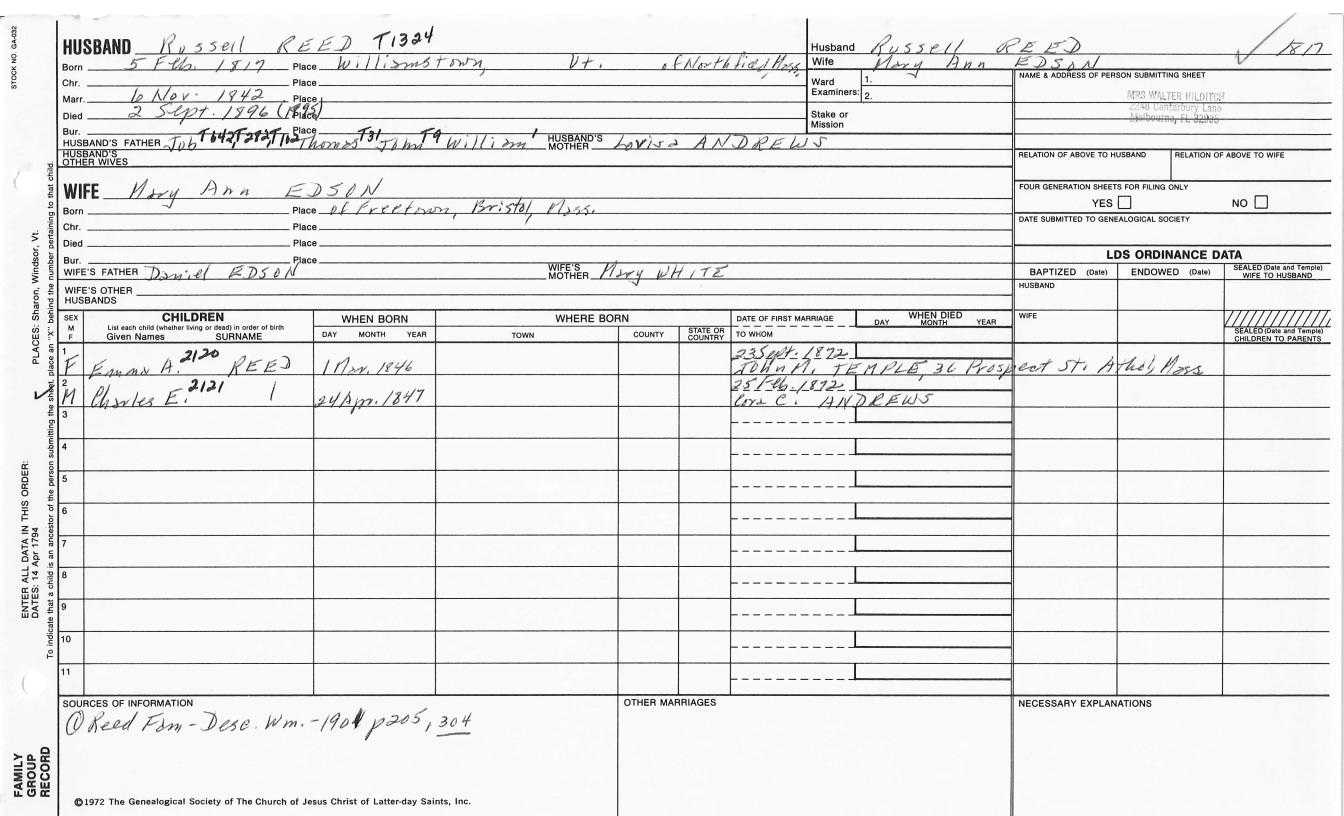 STOCK NO. GA-032
HUSBAND Russell REED T1324
Born 5 Feb. 1817 Place Williamstown, Vt. of Northfield, Mass.
Chr. Place
Marr. 6 Nov. 1842 Place
Died 2 Sept. 1896 (1895) Place
Bur. Place
HUSBAND'S FATHER Job T642, T272, T102 Thomas T31 John T9 William 1 HUSBAND'S MOTHER Lovisa ANDREWS
HUSBAND'S OTHER WIVES
Husband Russell REED 1817
Wife Mary Ann EDSON
Ward Examiners: 1.
2.
Stake or Mission
NAME & ADDRESS OF PERSON SUBMITTING SHEET
MRS WALTER HILDITCH
2240 Canterbury Lane
Melbourne, FL 32935
RELATION OF ABOVE TO HUSBAND RELATION OF ABOVE TO WIFE
FOUR GENERATION SHEETS FOR FILING ONLY
YES NO
DATE SUBMITTED TO GENEALOGICAL SOCIETY
WIFE Mary Ann EDSON
Born Place of Freetown, Bristol, Mass.
Chr. Place
Died Place
Bur. Place
WIFE'S FATHER Daniel EDSON WIFE'S MOTHER Mary WHITE
WIFE'S OTHER HUSBANDS
LDS ORDINANCE DATA
BAPTIZED (Date) ENDOWED (Date) SEALED (Date and Temple) WIFE TO HUSBAND
HUSBAND
WIFE
SEALED (Date and Temple) CHILDREN TO PARENTS
SEX M F
CHILDREN
List each child (whether living or dead) in order of birth
Given Names SURNAME
WHEN BORN
DAY MONTH YEAR
WHERE BORN
TOWN COUNTY STATE OR COUNTRY
DATE OF FIRST MARRIAGE
TO WHOM
WHEN DIED
DAY MONTH YEAR
1 F Emma A. 2120 REED 1 Mar. 1846 23 Sept. 1872
John M. TEMPLE, 36 Prospect St. Athol, Mass
2 M Charles E. 2121 | 24 Apr. 1847 25 Feb. 1872
Cora C. ANDREWS
3
4
5
6
7
8
9
10
11
SOURCES OF INFORMATION
① Reed Fam - Desc. Wm. - 1901 p205, 304
OTHER MARRIAGES
NECESSARY EXPLANATIONS
©1972 The Genealogical Society of The Church of Jesus Christ of Latter-day Saints, Inc.
ENTER ALL DATA IN THIS ORDER:
DATES: 14 Apr 1794
PLACES: Sharon, Windsor, Vt.
To indicate that a child is an ancestor of the person submitting the sheet, place an "X" behind the number pertaining to that child.
FAMILY GROUP RECORD